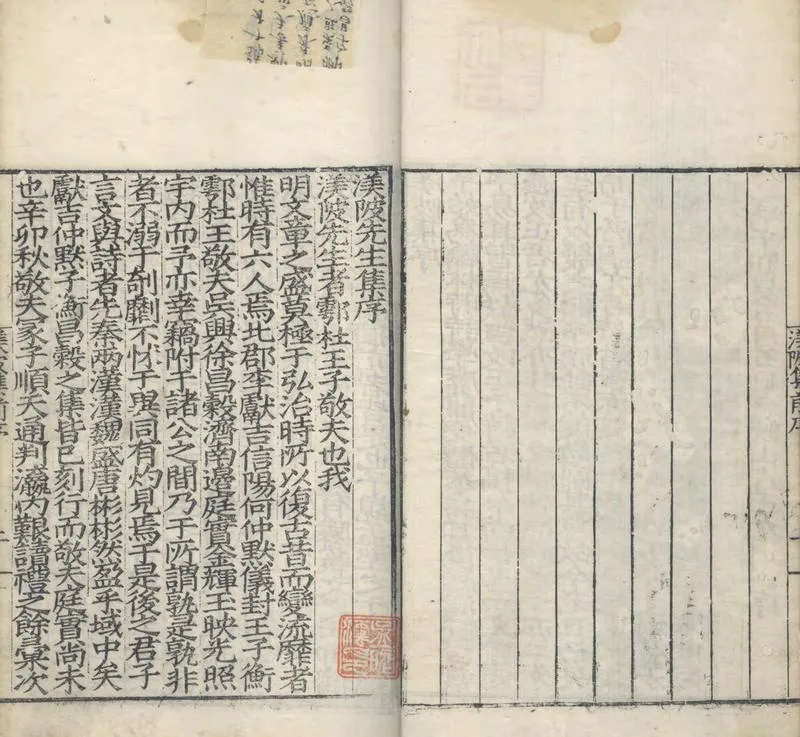 渼陂先生集序
渼陂先生者鄠杜王子敬夫也我
明文章之盛莫極于弘治時所以復古昔而變流靡者
惟時有六人焉北郡李獻吉信陽何仲默儀封王子衡
鄠杜王敬夫吳興徐昌穀濟南邊庭實金輝玉映光照
宇内而予亦幸竊附于諸公之間乃于所謂孰是孰非
者不溺于剖劘不怵于異同有灼見焉于是後之君子
言文與詩者先秦兩漢漢魏盛唐彬彬然盈乎域中矣
獻吉仲默子衡昌穀之集皆已刻行而敬夫庭實尚未
也辛卯秋敬夫冢子順天通判瀛内艱讀禮之餘彙次